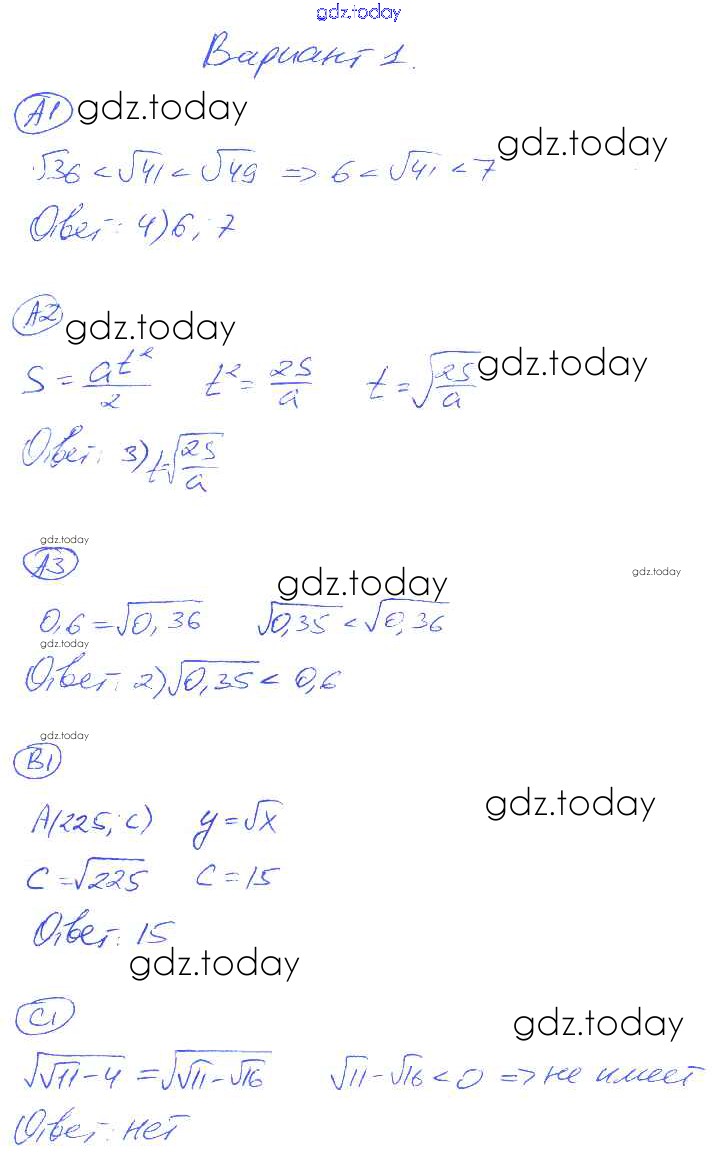 gdz.today
Вариант 1.
А1 gdz.today
gdz.today
√36 < √41 < √49 => 6 < √41 < 7
Ответ: 4) 6; 7
А2 gdz.today
S = at²/2 t² = 2S/a t = √(2S/a) gdz.today
Ответ: 3) t=√(2S/a)
gdz.today
А3
gdz.today gdz.today
0,6 = √0,36 √0,35 < √0,36
gdz.today
Ответ: 2) √0,35 < 0,6
gdz.today
В1
gdz.today
А(225; с) y = √x
С = √225 С = 15
Ответ: 15
gdz.today
С1
gdz.today
√(√11 - 4) = √(√11 - √16) √11 - √16 < 0 => не имеет
Ответ: нет